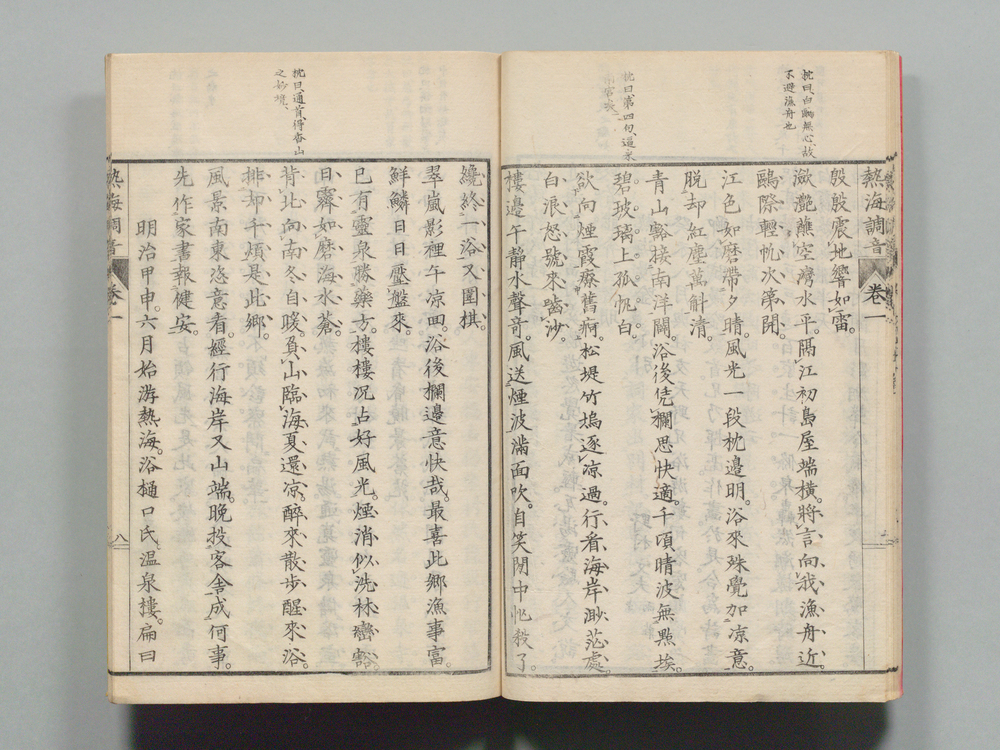 熱海調音 卷一
枕曰、白鷗無心、故
不避漁舟也
殷殷震地響如雷。
瀲灧蘸空灣水平。隅江初島屋端橫。將言向我漁舟近。
鷗際輕帆次第開。
江色如磨帶夕晴。風光一段枕邊明。浴來殊覺加凉意。
脫却紅塵萬斛清。
枕曰第四句、逼宋
青山豁接南洋闊。浴後凭欄思快適。千頃晴波無點埃。
碧玻璃上孤帆白。
欲向煙霞療舊痾。松堤竹塢逐凉過。行看海岸渺茫處。
白浪怒號來嚙沙。
樓邊午靜水聲奇。風送煙波滿面吹。自笑閒中忙殺了。
纔終一浴又圍棋。
翠嵐影裡午凉回。浴後欄邊意快哉。最喜此鄉漁事富。
鮮鱗日日壓盤來。
枕曰、通首、得香山
之妙境、
已有靈泉勝藥方。樓樓况占好風光。煙消似洗林巒豁。
日霽如磨海水蒼。
背北向南冬自暖。負山臨海夏還凉。醉來散步醒來浴。
排却千煩是此鄉。
風景南東恣意看。經行海岸又山端。晚投客舍成何事。
先作家書報健安。
明治甲申。六月始游熱海。浴樋口氏溫泉樓。扁曰
熱海調音 卷一 八